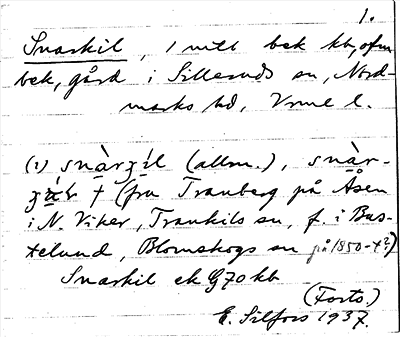 1.
Snarkil, 1 mtl bek kb, ofvn
bek, gård i Silleruds sn, Nord-
marks hd, Vrml l.
(1) snàrʒíl (allm.), snàr-
† (fru Tranberg på Åsen
i N. Viker, Trankils sn, f. i Bus-
telund, Blomskogs sn på 1850-t?)
Snarkil ek G70 kb
(Forts.)
E. Silfors 1937.